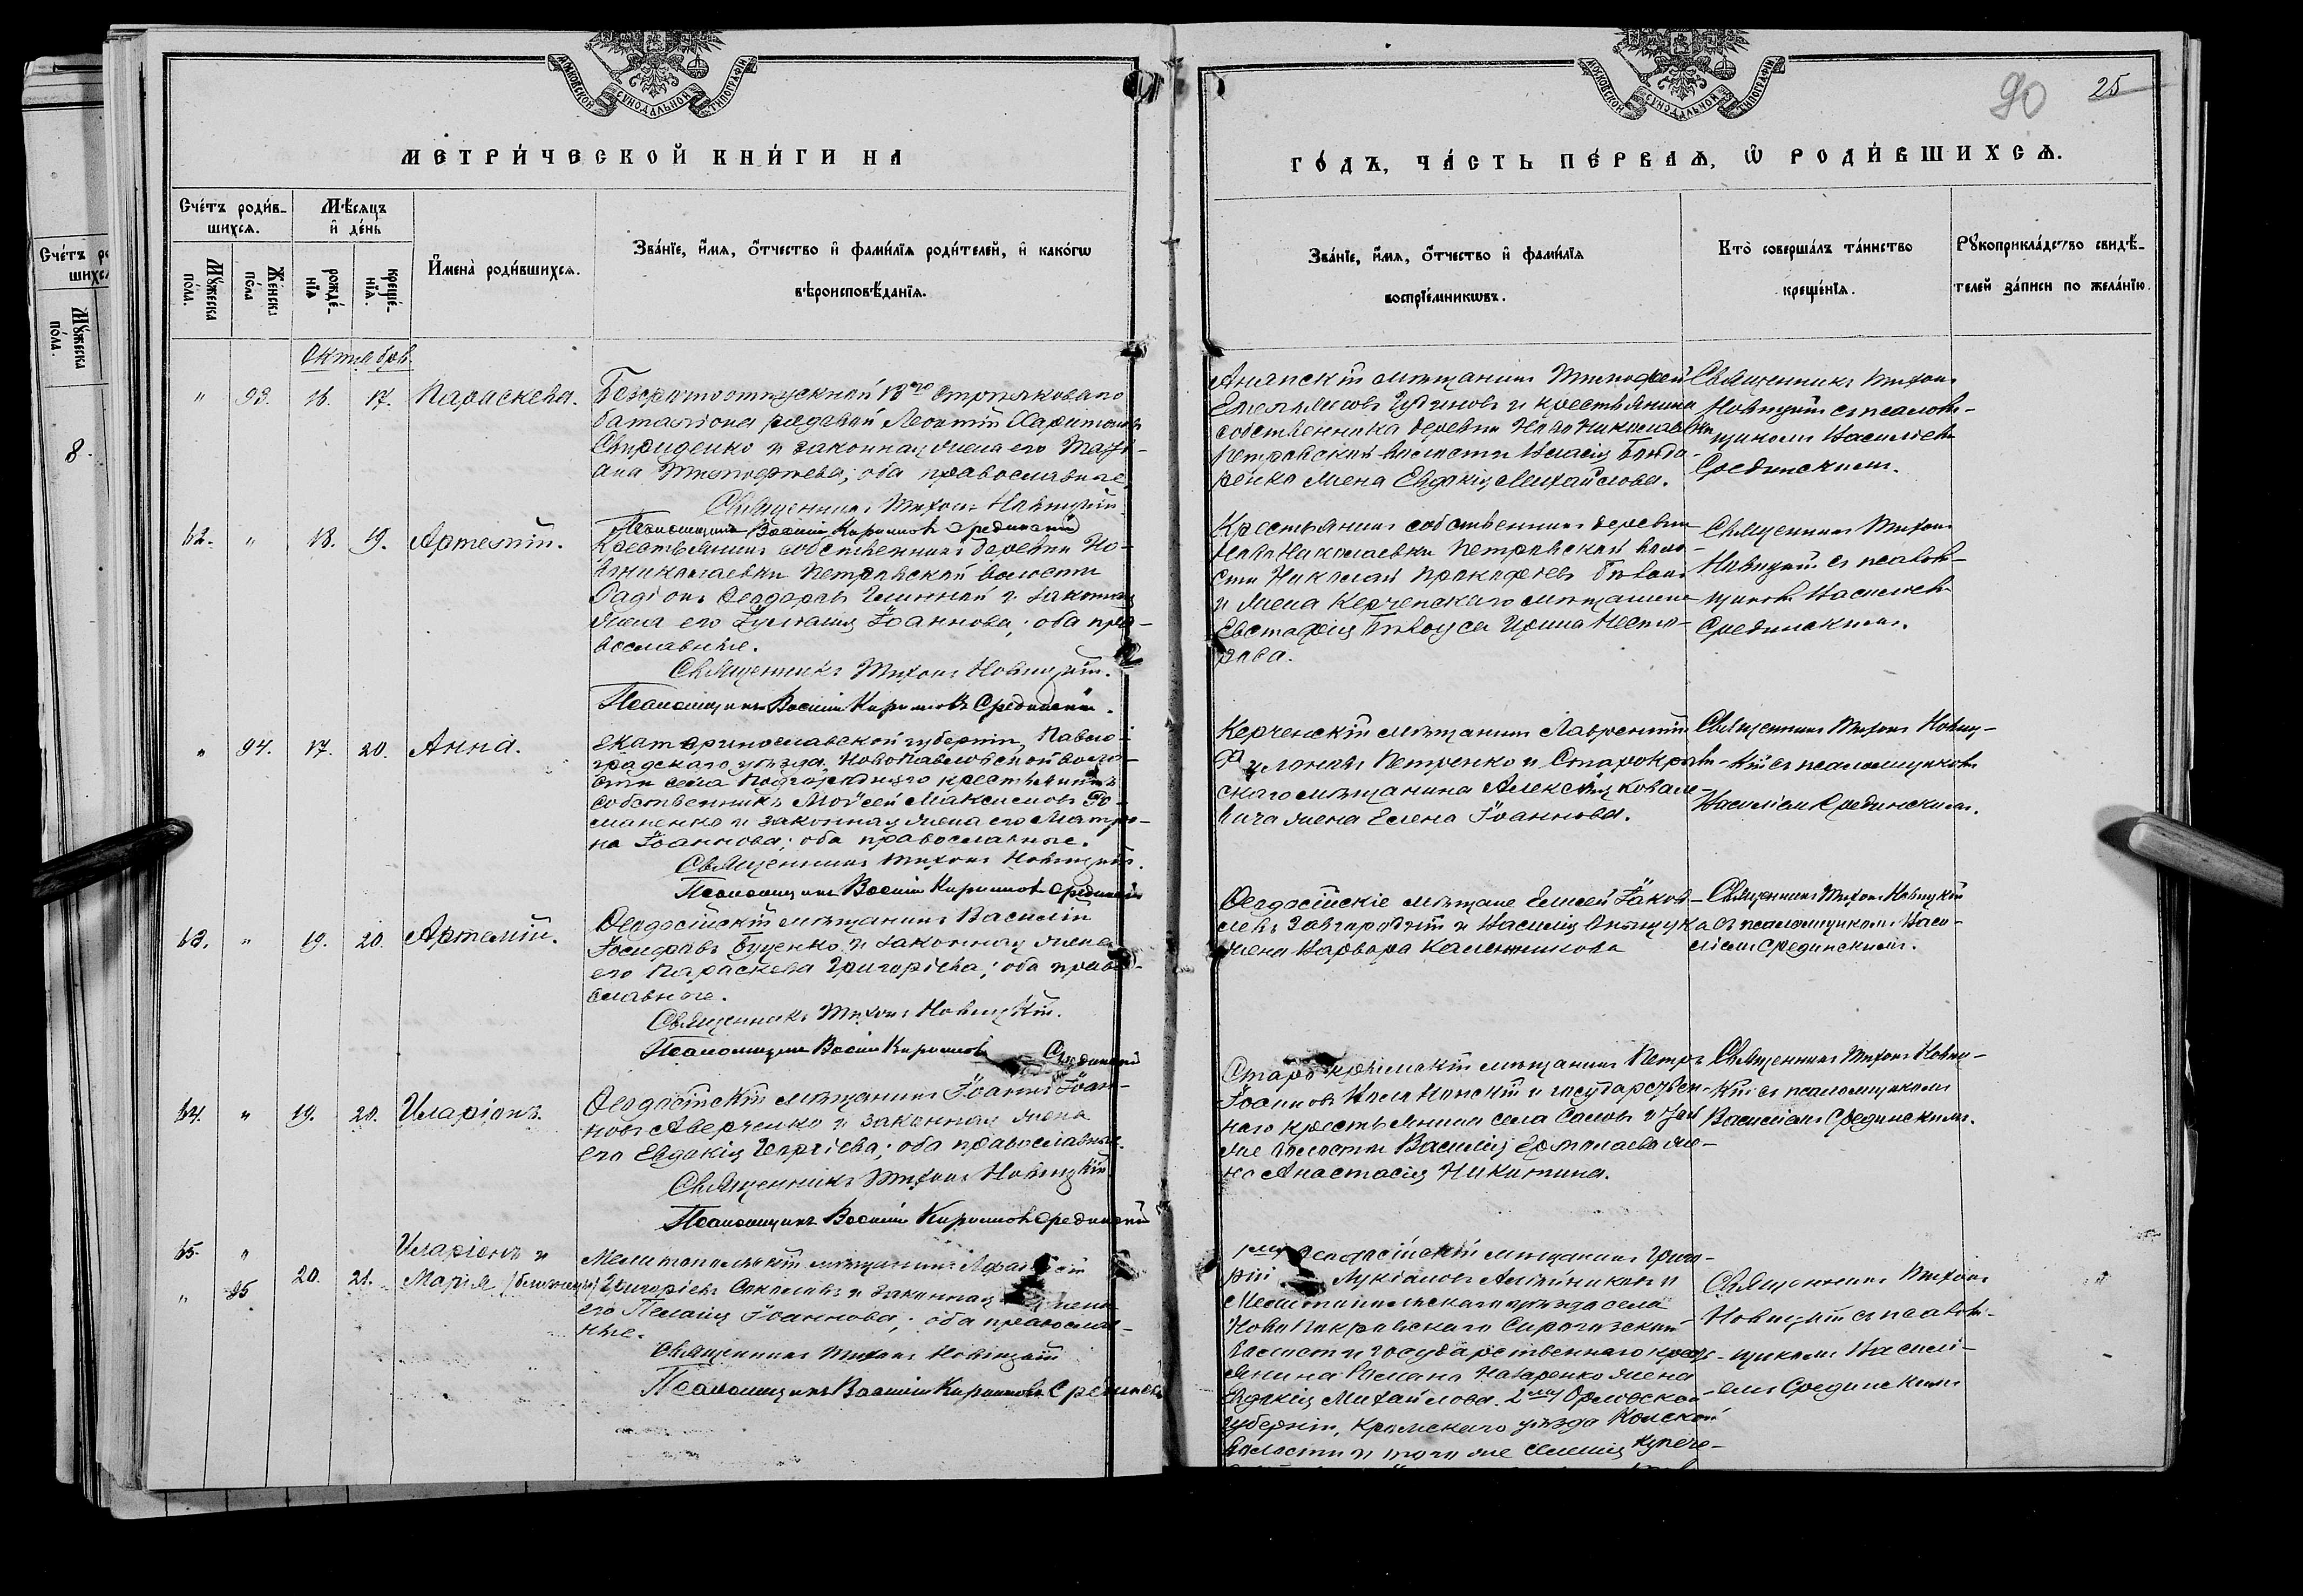 МОСКОВСКОЙ СУНОДАЛЬНОЙ ТИПОГРАФІИ
МЕТРИ́ЧЕСКОЙ КНИ́ГИ НА
Сче́тъ роди́в-
шихсѧ.
Мѣ́сѧцъ
и҆ де́нь
Мꙋ́жеска
по́ла.
Же́нска
по́ла
рожде́-
нїѧ
креще́-
нїѧ.
И҆мена̀ роди́вшихсѧ.
Зва́нїе, и҆́мѧ, ѻ҆́тчество и҆ фами́лїѧ роди́телей, и҆ како́гѡ
вѣроисповѣ́данїѧ.
Октября
" 93. 16. 17. Параскева.
Безсрочноотпускной 13го Стрѣлковаго
баталіона рядовой Леонтій Харитоновъ
Свириденко и законная жена его Тать-
ана Тимофеева; оба православные.
Священникъ Тихонъ Новицкій.
Псаломщикъ Василій Кириловъ Срединскій
62. " 18. 19. Артемій.
Крестьянинъ собственникъ деревни Но-
вониколаевки Петровской волости
Родіонъ Ѳеодоровъ и законная
жена его Іуліанія Іоаннова; оба пра-
вославные.
Священникъ Тихонъ Новицкій.
Псаломщикъ Василій Кириловъ Срединскій.
" 94. 17. 20. Анна.
Екатеринославской губерніи, Павло-
градскаго уѣзда, Новопавловской воло-
сти села крестьянинъ
собственникъ Моѵсей Максимовъ Ро-
маненко и законная жена его Матро-
на Іоаннова; оба православные.
Священникъ Тихонъ Новицкій.
Псаломщикъ Василій Кириловъ Срединскій
63. " 19. 20. Артемій.
Ѳеодосійскій мѣщанинъ Василій
Іосифовъ Буценко и законная жена
его Параскева Григоріева; оба право-
славные.
Священникъ Тихонъ Новицкій.
Псаломщикъ Василій Кириловъ Срединскій
64. " 19. 20. Иларіонъ.
Ѳеодосійскій мѣщанинъ Іоаннъ Іоан-
новъ Аверченко и законная жена
его Евдокія Георгіева; оба православные.
Священникъ Тихонъ Новицкій
Псаломщикъ Василій Кириловъ Срединскій
65. " Иларіонъ и
" 95 20. 21. Марія (близнецы)
Мелитопольскій мѣщанинъ
Григоріевъ Соколовъ и законная жена
его Пелагія Іоаннова; оба православ-
ные.
Священникъ Тихонъ Новицкій
Псаломщикъ Василій Кириловъ Срединскій
Сче́тъ ро
шихсѧ
Мꙋ́жеска
по́ла.
8.
МОСКОВСКОЙ СУНОДАЛЬНОЙ ТИПОГРАФІИ
90 25
ГО́ДЪ, ЧА́СТЬ ПЕ́РВАѦ, Ѡ҆ РОДИ́ВШИХСѦ.
Зва́нїе, и҆́мѧ, ѻ҆́тчество и҆ фами́лїѧ
воспрїе́мникѡвъ.
Кто̀ соверша́лъ та́инство
креще́нїѧ.
Рꙋкоприкла́дство свидѣ́-
телей за́писи по жела́нїю.
Анапскій мѣщанинъ Тимофей
Емельяновъ и крестьянина
собственника деревни Ново Николаевки
Петровской волости Власія Бонда-
ренко жена Евдокія Михайлова.
Священникъ Тихонъ
Новицкій съ псалом-
щикомъ Василіемъ
Срединскимъ.
Крестьянинъ собственникъ деревни
Ново Николаевки Петровской воло-
сти Николай Прокофіевъ
и жена Керченскаго мѣщанина
Евстафія Бѣлоуса Ирина Несте-
рова.
Священникъ Тихонъ
Новицкій съ псалом-
щикомъ Василіемъ
Срединскимъ.
Керченскій мѣщанинъ Лаврентій
Петренко и Старокрым-
скаго мѣщанина Алексія Ковале-
вича жена Елена Іоаннова.
Священникъ Тихонъ Новиц-
кій съ псаломщикомъ
Василіемъ Срединскимъ.
Ѳеодосійскіе мѣщане Елисей Іаков-
левъ и Василія
жена Варвара
Священникъ Тихонъ Новицкій
съ псаломщикомъ Васи-
ліемъ Срединскимъ.
Старокрымскій мѣщанинъ Петръ
Іоанновъ и государствен-
наго крестьянина села
волости Василія Ермолаева же-
на Анастасія Никитина.
Священникъ Тихонъ Нови-
кій съ псаломщикомъ
Василіемъ Срединскимъ.
Ѳеодосійскій мѣщанинъ Григо-
рій Лукіановъ и
Мелитопольскаго уѣзда села
Ново Покровскаго Сирогозской
волости государственнаго кресть-
янина Романа Назаренко жена
Евдокія Михайлова. Орловской
губерніи, Кромскаго уѣзда
волости и того же
Священникъ Тихонъ
Новицкій съ псалом-
щикомъ Василі-
емъ Срединскимъ